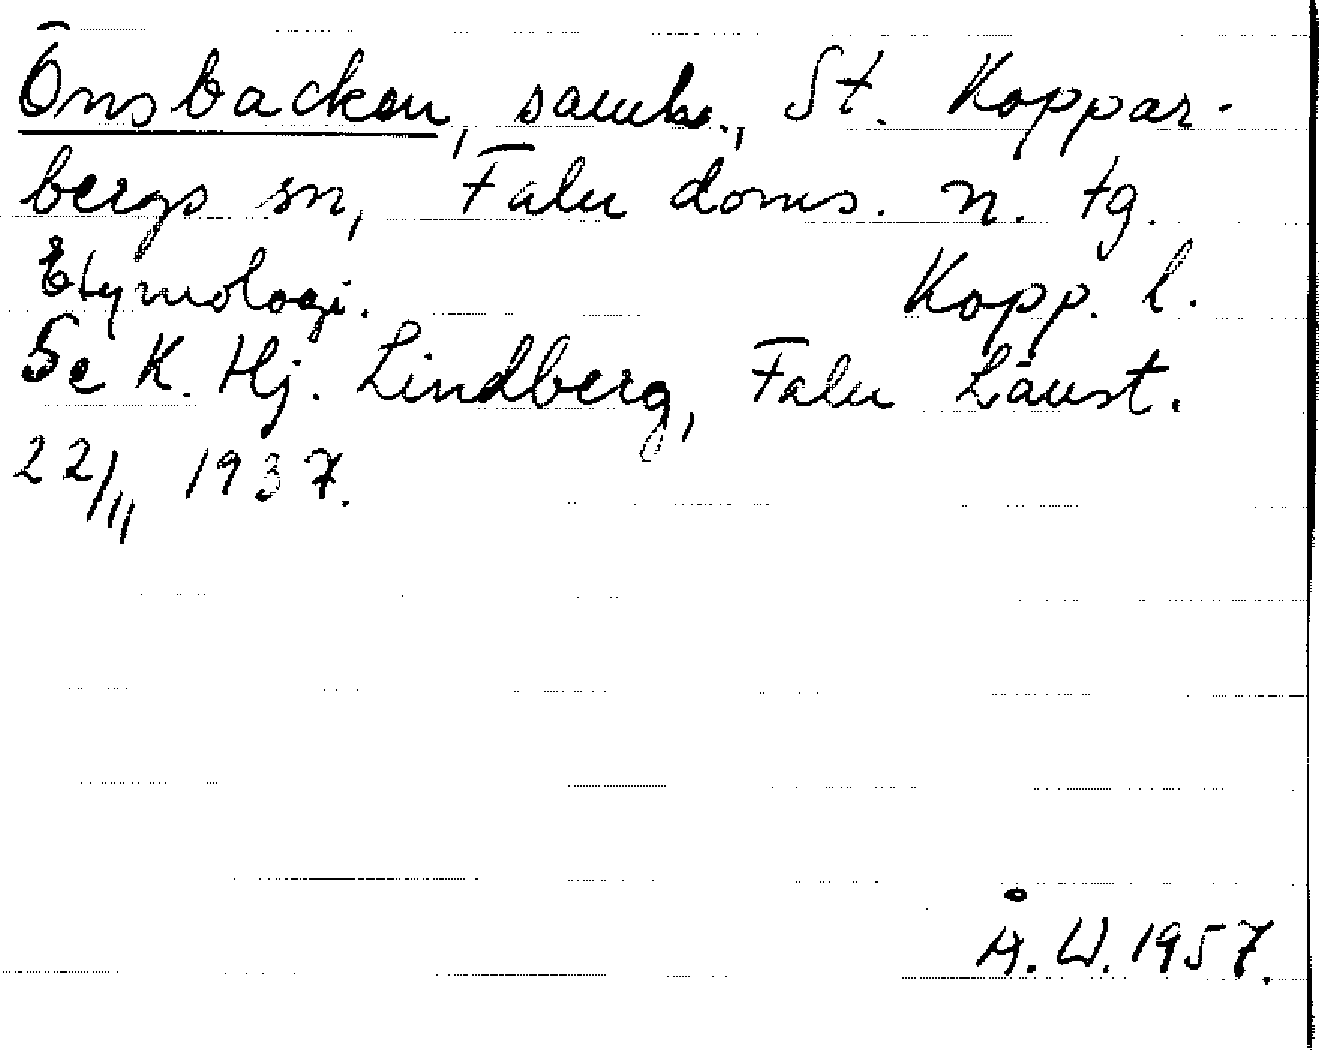 Önsbacken, samh., St. Koppar-
bergs sn, Falu doms. n. tg.
Etymologi. Kopp. l.
Se K. Hj. Lindberg, Falu Länst.
22/11 1937.
Å. W. 1957.